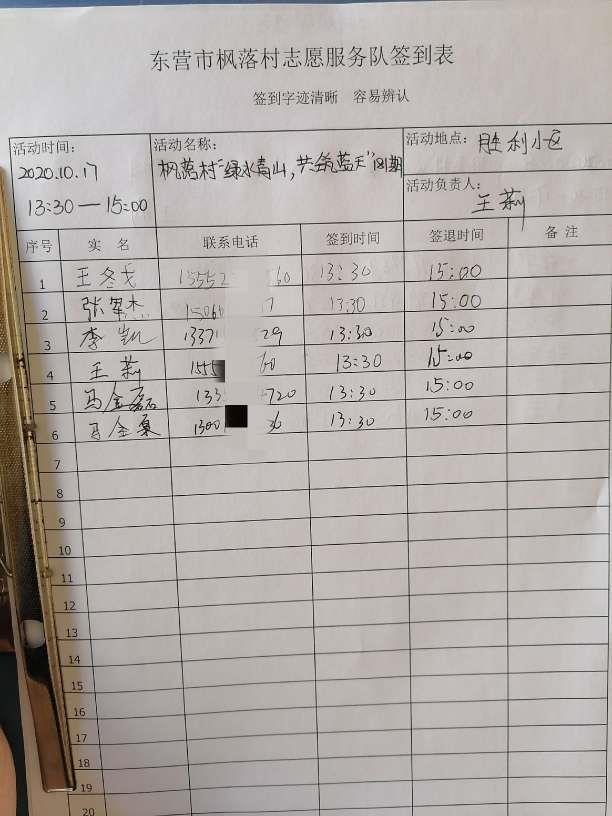 东营市枫落村志愿服务队签到表
签到字迹清晰 容易辨认
活动时间: 2020.10.17 13:30—15:00
活动名称: 枫落村“绿水青山,共筑蓝天”四期
活动地点: 胜利小区
活动负责人: 王莉
序号 实名 联系电话 签到时间 签退时间 备注
1 王冬戈 13:30 15:00
2 张军杰 13:30 15:00
3 李凯 13:30 15:00
4 王莉 13:30 15:00
5 马金磊 13:30 15:00
6 马金 13:30 15:00
7
8
9
10
11
12
13
14
15
16
17
18
19
20